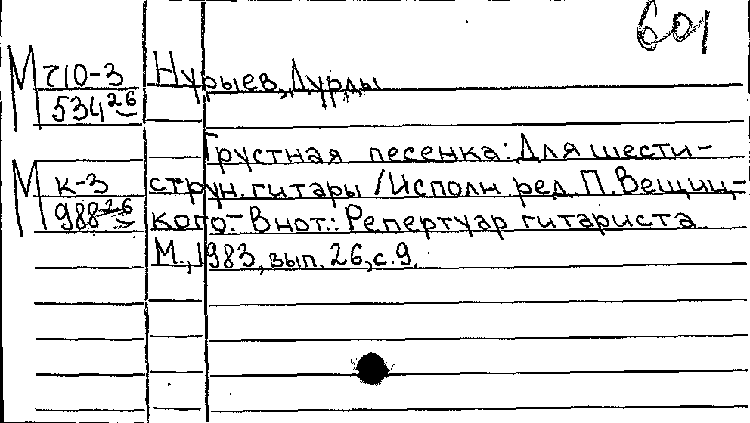 601
М Г10-3 Нурыев, Дурды
534 26
Грустная песенка: Для шести-
М К-3 струн. гитары / Исполн. ред. П. Вещиц-
988 26 кого. - В нот.: Репертуар гитариста.
М., 1983, вып. 26, с. 9.